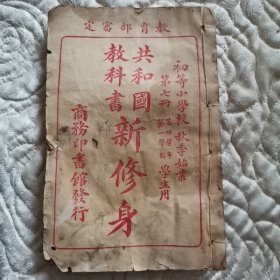 教育部審定
初等小學校 秋季始業
第七冊 第四學年 第一學期 學生用
共和國
教科書
新修身
商務印書館發行